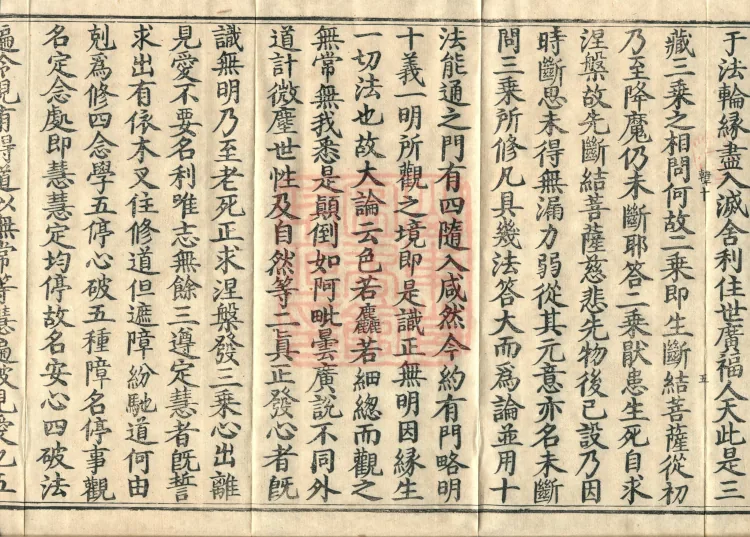 于法輪緣盡入滅舍利住世廣福人天此是三
藏三乘之相問何故二乘即生斷結菩薩從初
乃至降魔仍未斷耶答二乘猒患生死自求
涅槃故先斷結菩薩慈悲先物後己設乃因
時斷思未得無漏力弱從其元意亦名未斷
問三乘所修凡具幾法答大而爲論並用十
法能通之門有四隨入咸然今約有門略明
十義一明所觀之境即是識正無明因緣生
一切法也故大論云色若麤若細總而觀之
無常無我悉是顛倒如阿毗曇廣說不同外
道計微塵世性及自然等二真正發心者旣
識無明乃至老死正求涅槃發三乘心出離
見愛不要名利唯志無餘三遵定慧者旣誓
求出有依木叉住修道但遮障紛馳道何由
剋爲修四念學五停心破五種障名停事觀
名定念處即慧慧定均停故名安心四破法
遍令見有得道以無常等慧遍破見愛九五